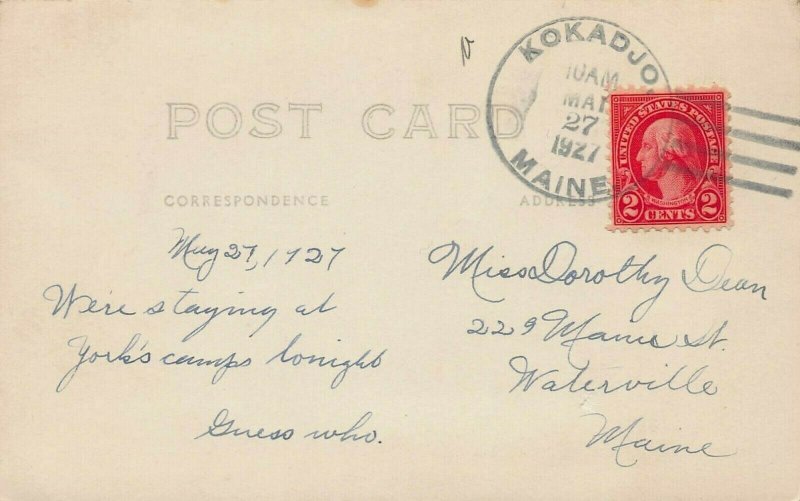 KOKADJO
10AM
MAY
27
1927
MAINE
UNITED STATES POSTAGE
WASHINGTON
2 CENTS 2
POST CARD
CORRESPONDENCE
ADDRESS
May 27, 1927
We're staying at
York's camps tonight
Guess who.
Miss Dorothy Dean
229 Maine St.
Waterville
Maine